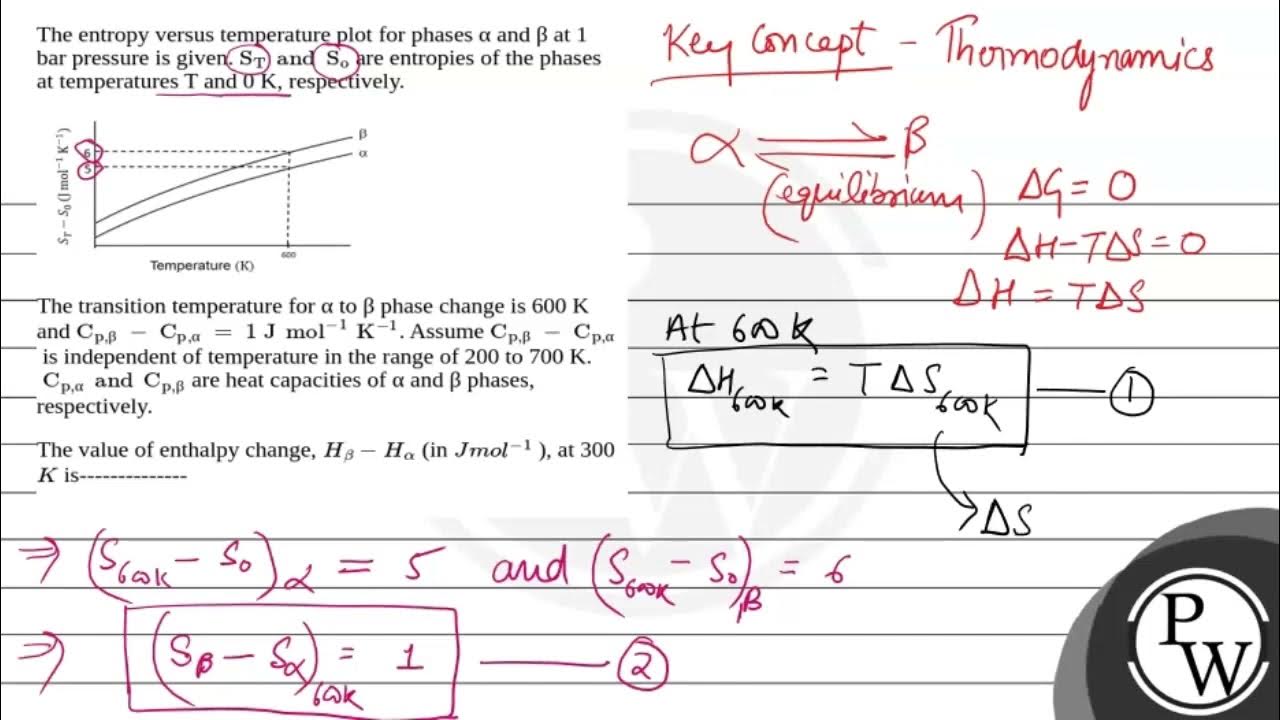 The entropy versus temperature plot for phases α and β at 1
bar pressure is given. S_T and S_o are entropies of the phases
at temperatures T and 0 K, respectively.
β
α
6
5
S_T − S_0 (J mol⁻¹ K⁻¹)
600
Temperature (K)
The transition temperature for α to β phase change is 600 K
and C_p,β − C_p,α = 1 J mol⁻¹ K⁻¹. Assume C_p,β − C_p,α
is independent of temperature in the range of 200 to 700 K.
C_p,α and C_p,β are heat capacities of α and β phases,
respectively.
The value of enthalpy change, H_β − H_α (in Jmol⁻¹ ), at 300
K is--------------
Key Concept - Thermodynamics
α ⇌ β
(equilibrium)
ΔG = 0
ΔH-TΔS = 0
ΔH = TΔS
At 600K
ΔH_600K = TΔS_600K — ①
→ ΔS
⇒ (S_600K - S_0)_α = 5 and (S_600K - S_0)_,β = 6
⇒ (S_β - S_α)_600K = 1 — ②
PW